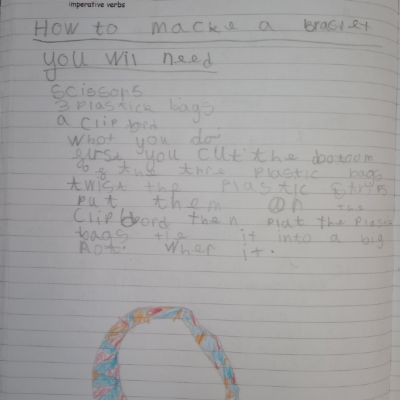 imperative verbs
How to macke a braslet
you wil need
Scissors
3 Plastick bags
a clip bord
What you do
first you cut the botoom
of the thre plastic bags
twist the plastic strips
put them on the
clipbord then plat the plastic
bags tie it into a big
not. Wher it.